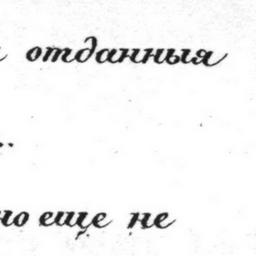 отданныя
..
но еще не